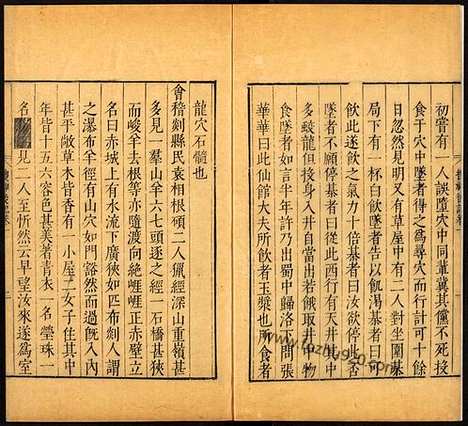 初嘗有一人誤墮穴中同輩冀其儻不死投
食于穴中墜者得之為尋穴而行計可十餘
日忽然見明又有草屋中有二人對坐圍棊
局下有一杯白飲墜者告以飢渴棊者曰可
飲此遂飲之氣力十倍棊者曰汝欲停此否
墜者不願停棊者曰從此西行有天井其中
多蛟龍但投身入井自當出若餓取井中物
食墜者如言半年許乃出蜀中歸洛下問張
華華曰此仙館大夫所飲者玉漿也所食者
龍穴石髓也
會稽剡縣民袁相根碩二人獵經深山重嶺甚
多見一羣山羊六七頭逐之經一石橋甚狹
而峻羊去根等亦隨渡向絶崕崕正赤壁立
名曰赤城上有水流下廣狹如匹布剡人謂
之瀑布羊徑有山穴如門豁然而過既入內
甚平敞草木皆香有一小屋二女子住其中
年皆十五六容色甚美著青衣一名瑩珠一
名 見二人至忻然云早望汝來遂為室